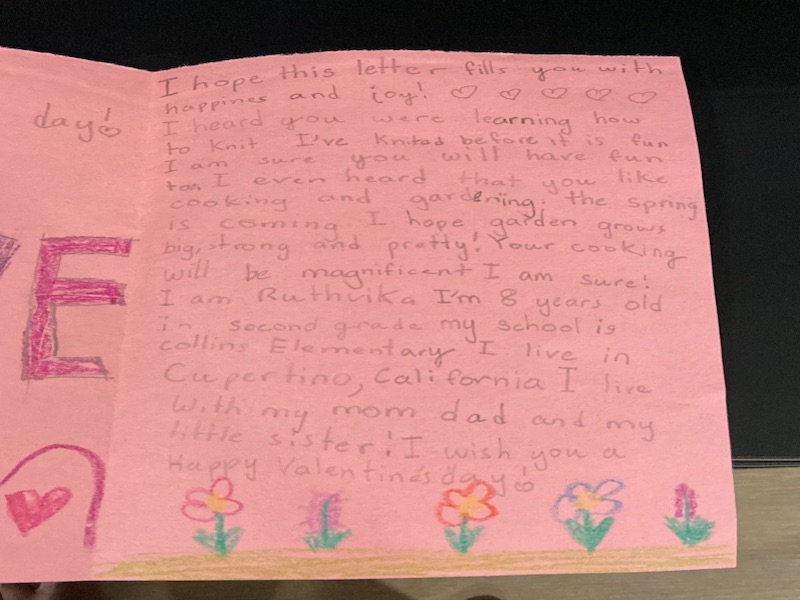 day!
E
I hope this letter fills you with
happines and joy! ♡ ♡ ♡ ♡ ♡
I heard you were learning how
to knit I've knited before it is fun
I am sure you will have fun
too I even heard that you like
cooking and gardening. the spring
is coming I hope garden grows
big, strong and pretty! Your cooking
will be magnificent I am sure!
I am Ruthvika I'm 8 years old
in second grade my school is
collins Elementary I live in
Cupertino, California I live
with my mom dad and my
little sister! I wish you a
Happy Valentine's day!